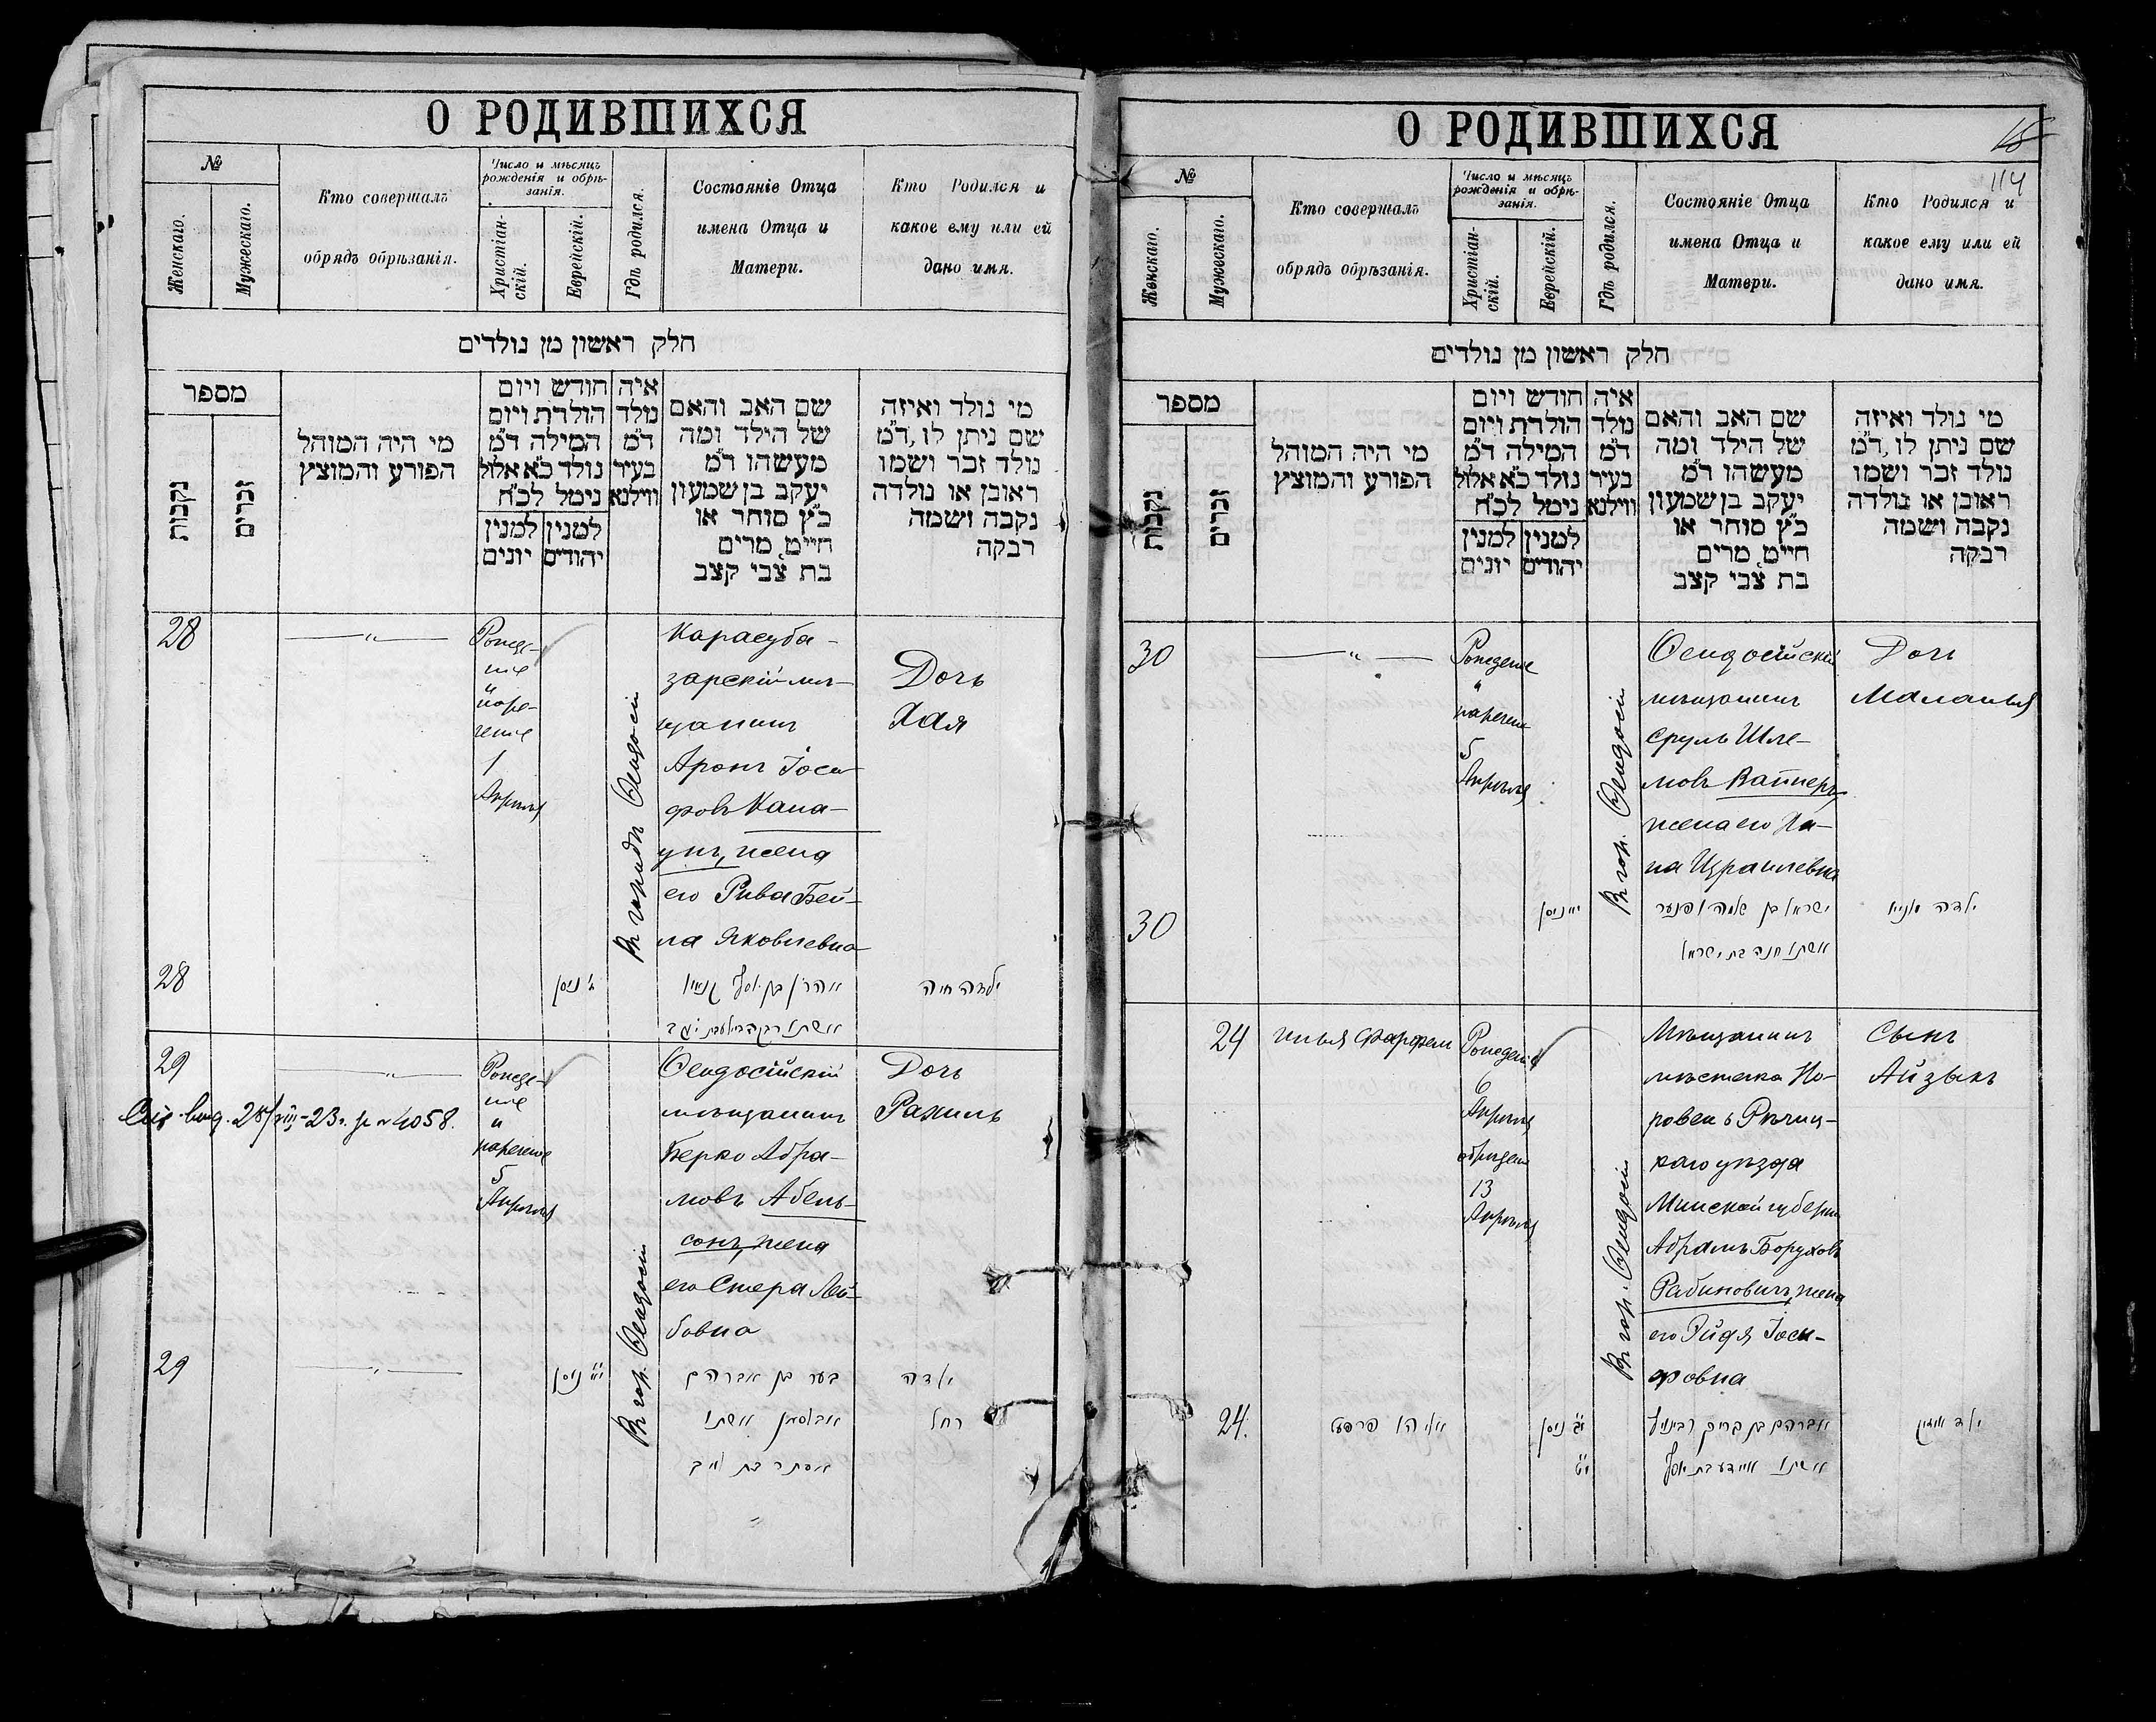 О РОДИВШИХСЯ
№
Женскаго.
Мужескаго.
Кто совершалъ
обрядъ обрѣзанія.
Число и мѣсяцъ
рожденія и обрѣ-
занія.
Христіан-
скій.
Еврейскій.
Гдѣ родился.
Состояніе Отца
имена Отца и
Матери.
Кто Родился и
какое ему или ей
дано имя.
חלק ראשון מן נולדים
מספר
נקבות
זכרים
מי היה המוהל
הפורע והמוצץ
חודש ויום
הולדת ויום
המילה ד״מ
נולד כ״א אלול
נימל לכ״ח
למנין
יונים
למנין
יהודים
איה
נולד
ד״מ
בעיר
ווילנא
שם האב והאם
של הילד ומה
מעשהו ד״מ
יעקב בן שמעון
כ״ץ סוחר או
חייט, מרים
בת צבי קצב
מי נולד ואיזה
שם ניתן לו, ד״מ
נולד זכר ושמו
ראובן או נולדה
נקבה ושמה
רבקה
28
Рожде-
ніе
и
наре-
ченіе
1
Апрѣля
Въ городѣ Ѳеодосіи
Карасуба-
зарскій мѣ-
щанинъ
Аронъ Іоси-
фовъ Кана-
унъ, жена
его Рива Бей-
ла Яковлевна
Дочь
Хая
28
ניסן
אהרן בן יוסף
ילדה חיה
29
Рожде-
ніе
и
нареченіе
5
Апрѣля
Въ гор. Ѳеодосіи
Ѳеодосійскій
мѣщанинъ
Берко Абра-
мовъ Абель-
сонъ, жена
его Стера Лей-
бовна
Дочь
Рахиль
4058.
29
ניסן
בער בן אברהם
אבלסאן אשתו
ילדה
רחל
О РОДИВШИХСЯ
15
114
№
Женскаго.
Мужескаго.
Кто совершалъ
обрядъ обрѣзанія.
Число и мѣсяцъ
рожденія и обрѣ-
занія.
Христіан-
скій.
Еврейскій.
Гдѣ родился.
Состояніе Отца
имена Отца и
Матери.
Кто Родился и
какое ему или ей
дано имя.
חלק ראשון מן נולדים
מספר
נקבות
זכרים
מי היה המוהל
הפורע והמוצץ
חודש ויום
הולדת ויום
המילה ד״מ
נולד כ״א אלול
נימל לכ״ח
למנין
יונים
למנין
יהודים
איה
נולד
ד״מ
בעיר
ווילנא
שם האב והאם
של הילד ומה
מעשהו ד״מ
יעקב בן שמעון
כ״ץ סוחר או
חייט, מרים
בת צבי קצב
מי נולד ואיזה
שם ניתן לו, ד״מ
נולד זכר ושמו
ראובן או נולדה
נקבה ושמה
רבקה
30
Рожденіе
и
нареченіе
5
Апрѣля
Въ гор. Ѳеодосіи
Ѳеодосійскій
мѣщанинъ
Сруль Шле-
мовъ Вайнеръ
жена его Ха-
на Израилевна
Дочь
Маланья
30
ניסן
ישראל בן שלמה
אשתו חנה בת ישראל
ילדה
24
Илья Фарфель
Рожденіе
6
Апрѣля
обрѣзаніе
13
Апрѣля
Въ гор. Ѳеодосіи
Мѣщанинъ
мѣстечка На-
ровель Рѣчиц-
каго уѣзда
Минской губерніи
Абрамъ Боруховъ
Рабиновичъ, жена
его Эйдя Іоси-
фовна
Сынъ
Айзыкъ
24.
אליהו פרפעל
ניסן
אברהם בן ברוך רבינוביץ
אשתו איידע בת יוסף
ילד אייזיק